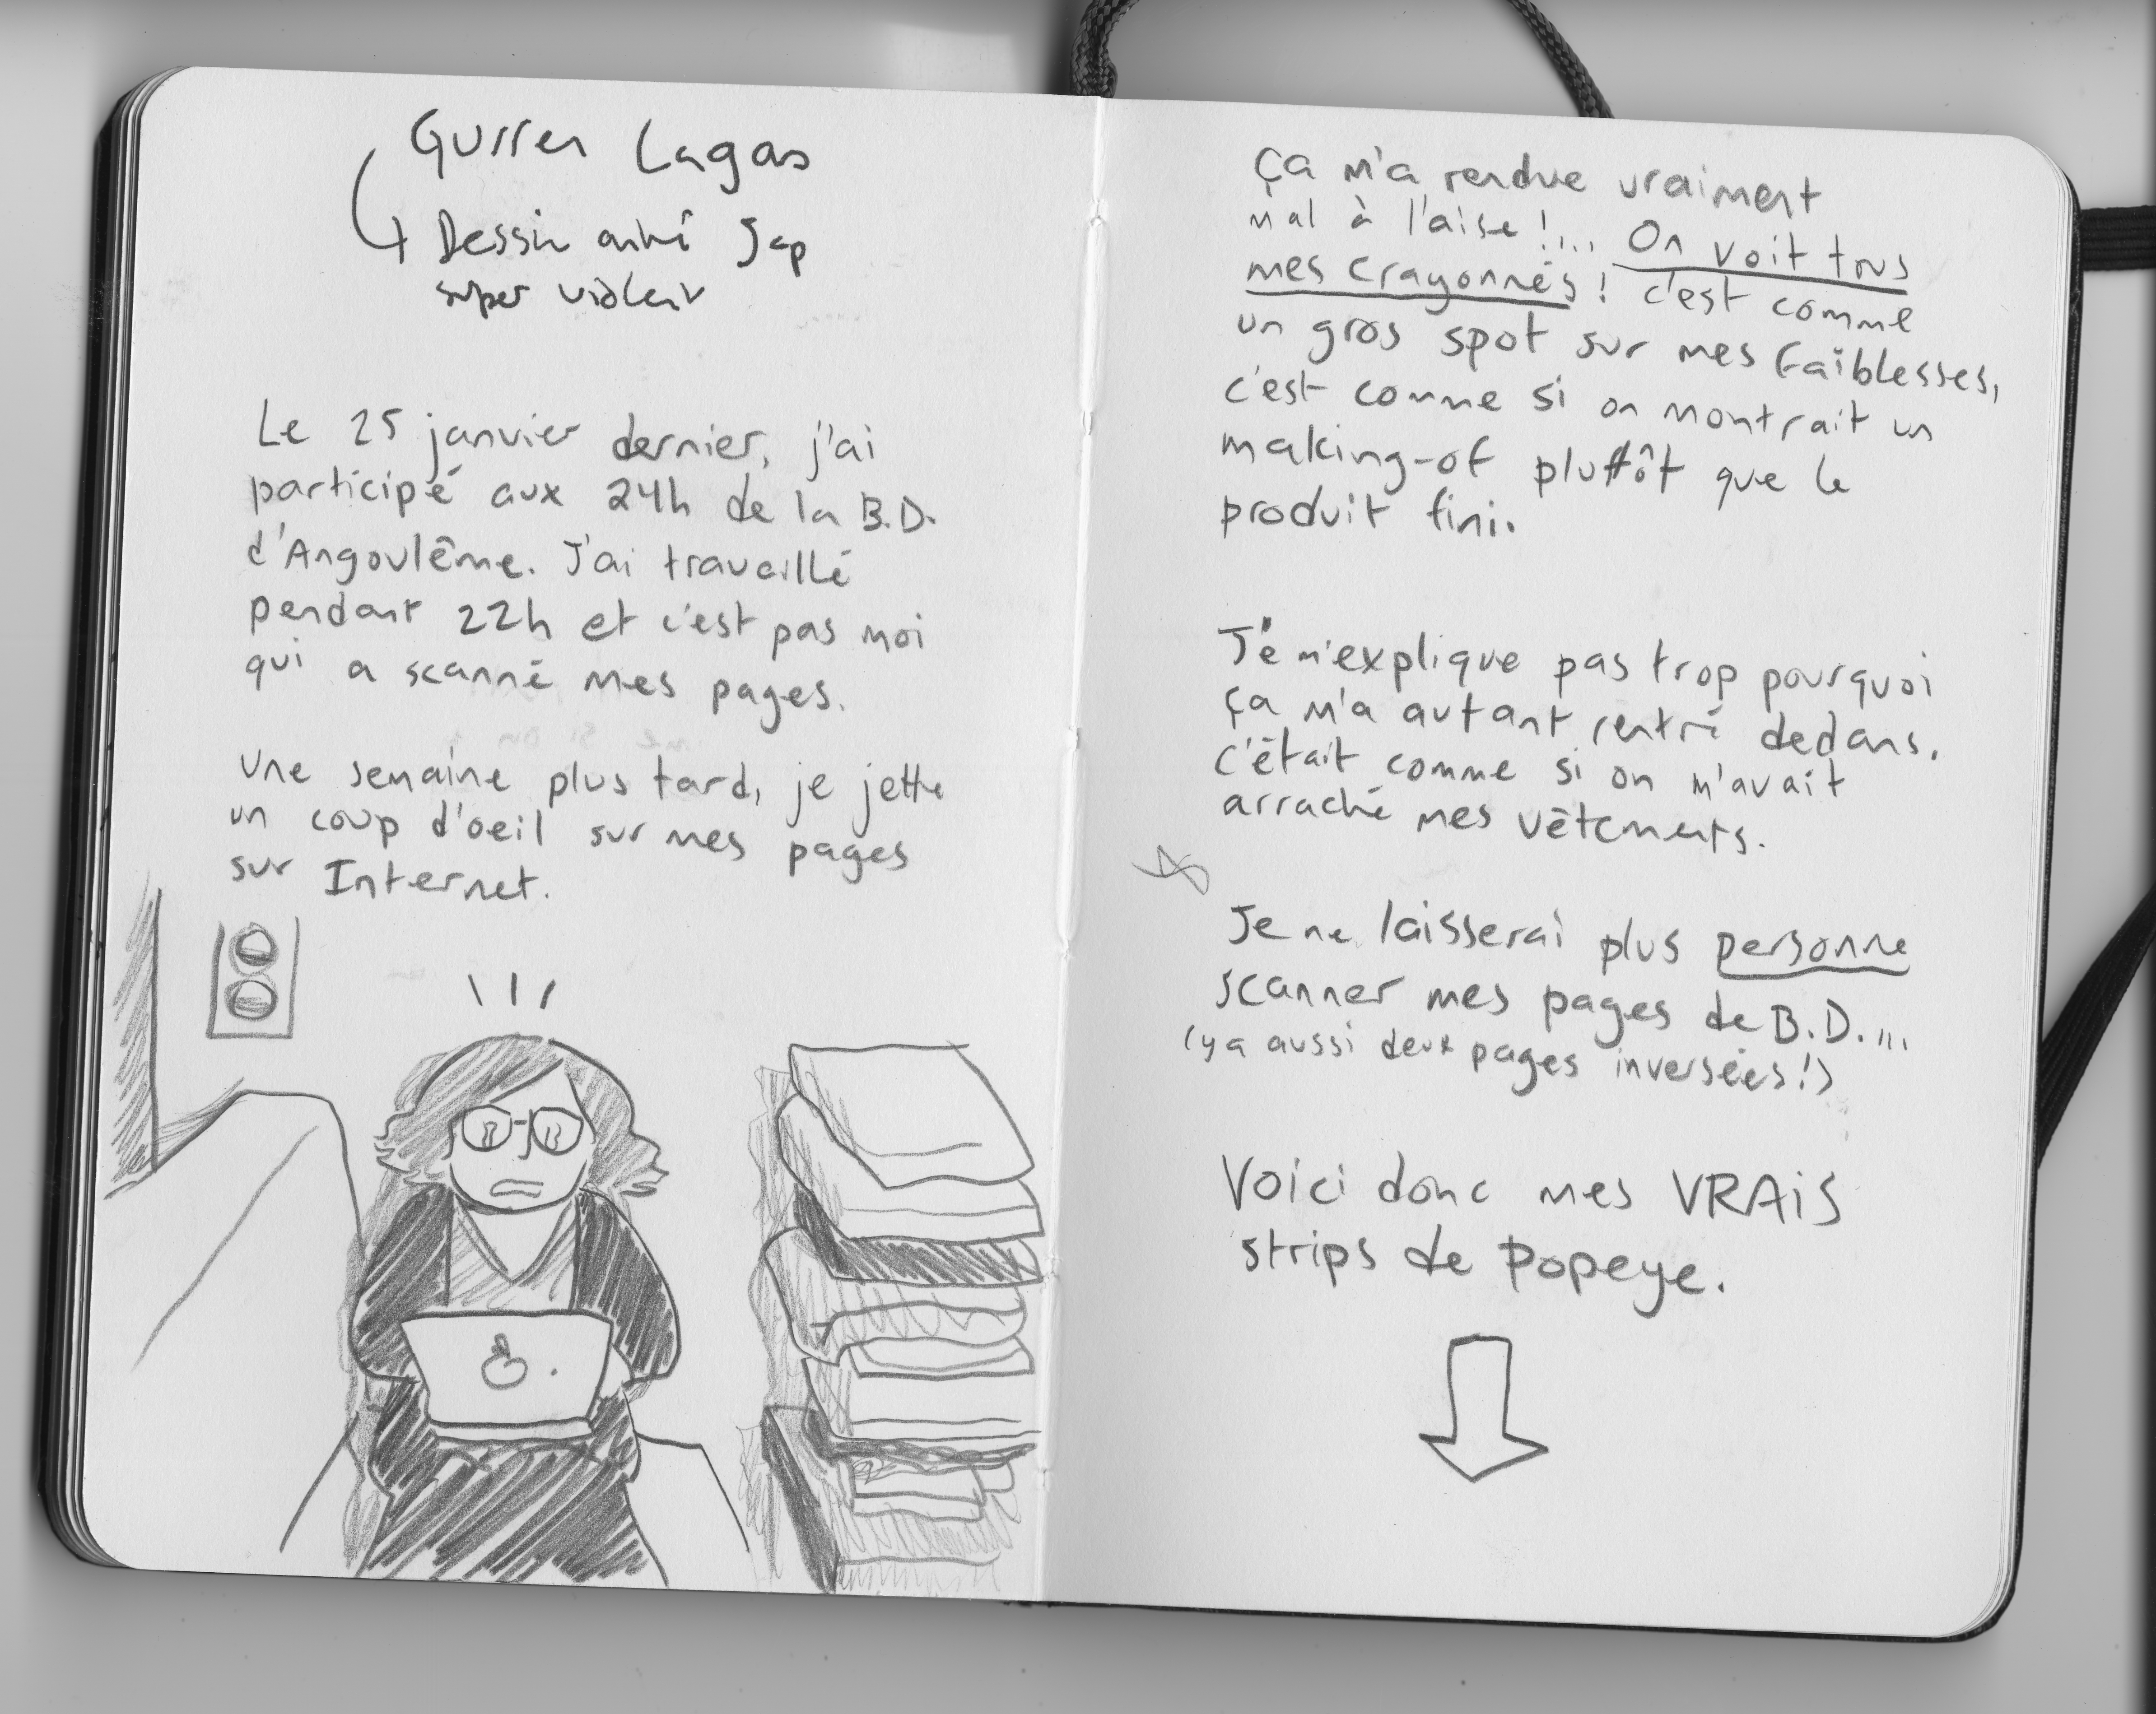 Gurren Lagan
Dessin animé Jap
super violent
Le 25 janvier dernier, j'ai
participé aux 24h de la B.D.
d'Angoulême. J'ai travaillé
pendant 22h et c'est pas moi
qui a scanné mes pages.
Une semaine plus tard, je jette
un coup d'oeil sur mes pages
sur Internet.
Ça m'a rendue vraiment
mal à l'aise!... On voit tous
mes crayonnés! c'est comme
un gros spot sur mes faiblesses,
c'est comme si on montrait un
making-of pluttôt que le
produit fini.
Je m'explique pas trop pourquoi
ça m'a autant rentré dedans.
C'était comme si on m'avait
arraché mes vêtements.
Je ne laisserai plus personne
scanner mes pages de B.D....
(y a aussi deux pages inversées!)
Voici donc mes VRAiS
strips de Popeye.